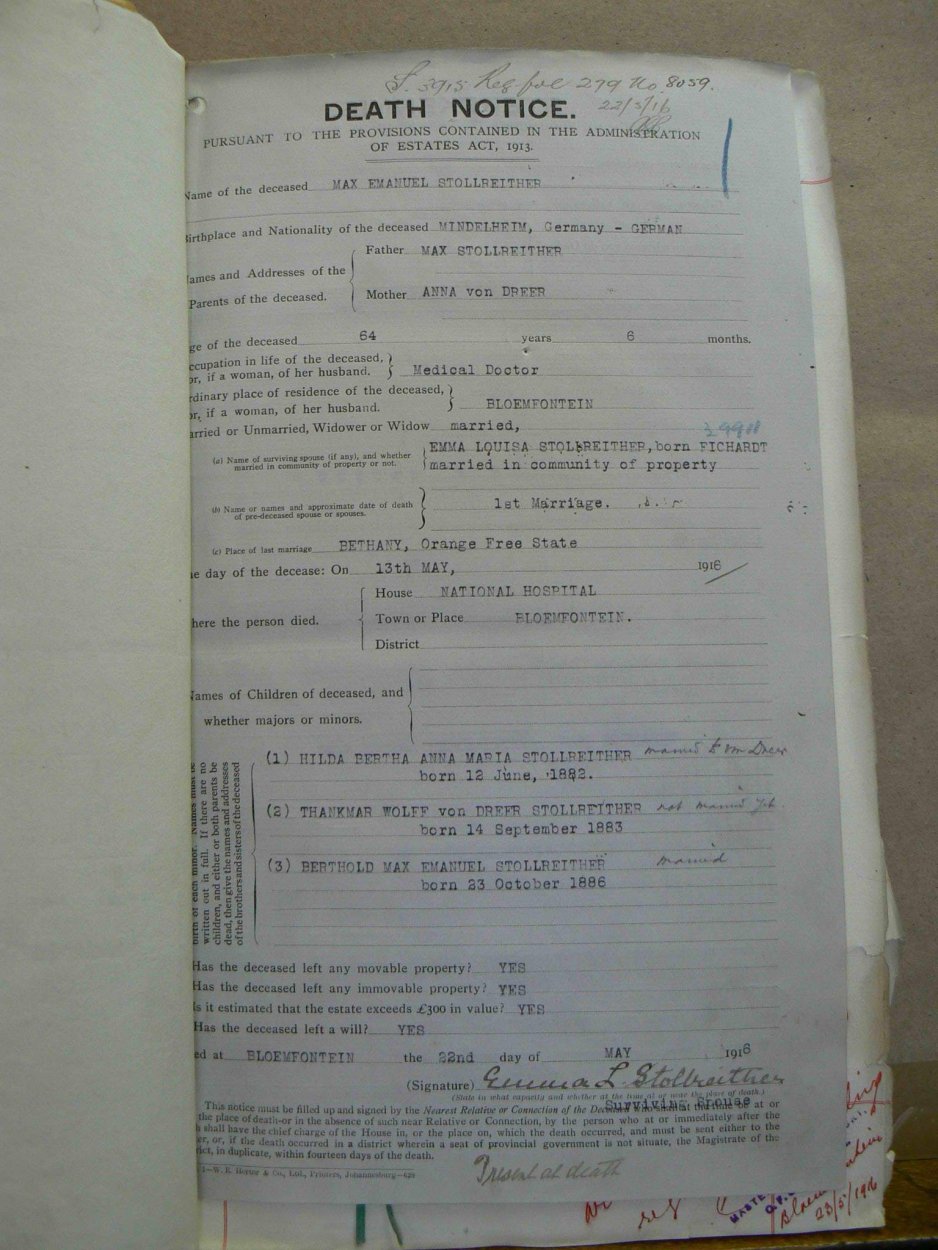 S. 3915 Reg fol 279 No. 8059.
22/5/16
DEATH NOTICE.
PURSUANT TO THE PROVISIONS CONTAINED IN THE ADMINISTRATION
OF ESTATES ACT, 1913.
Name of the deceased MAX EMANUEL STOLLREITHER
Birthplace and Nationality of the deceased MINDELHEIM, Germany - GERMAN
ames and Addresses of the
Parents of the deceased.
Father MAX STOLLREITHER
Mother ANNA von DREER
ge of the deceased 64 years 6 months.
ccupation in life of the deceased,
or, if a woman, of her husband.
Medical Doctor
rdinary place of residence of the deceased,
or, if a woman, of her husband.
BLOEMFONTEIN
arried or Unmarried, Widower or Widow married,
(a) Name of surviving spouse (if any), and whether
married in community of property or not.
EMMA LOUISA STOLLREITHER, born FICHARDT
married in community of property
(b) Name or names and approximate date of death
of pre-deceased spouse or spouses.
1st Marriage.
(c) Place of last marriage BETHANY, Orange Free State
he day of the decease: On 13th MAY, 1916
here the person died.
House NATIONAL HOSPITAL
Town or Place BLOEMFONTEIN.
District
Names of Children of deceased, and
whether majors or minors.
birth of each minor. Names must be
written out in full. If there are no
children, and either or both parents be
dead, then give the names and addresses
of the brothers and sisters of the deceased
(1) HILDA BERTHA ANNA MARIA STOLLREITHER married to von Dreer
born 12 June, 1882.
(2) THANKMAR WOLFF von DREER STOLLREITHER not married
born 14 September 1883
(3) BERTHOLD MAX EMANUEL STOLLREITHER married
born 23 October 1886
Has the deceased left any movable property? YES
Has the deceased left any immovable property? YES
Is it estimated that the estate exceeds £300 in value? YES
Has the deceased left a will? YES
ed at BLOEMFONTEIN the 22nd day of MAY 1916
(Signature) Emma L. Stollreither
(State in what capacity and whether at the time at or near the place of death.)
Surviving Spouse
This notice must be filled up and signed by the Nearest Relative or Connection of the Deceased who shall at the time be at or
the place of death—or in the absence of such near Relative or Connection, by the person who at or immediately after the
h shall have the chief charge of the House in, or the place on, which the death occurred, and must be sent either to the
er, or, if the death occurred in a district wherein a seat of provincial government is not situate, the Magistrate of the
rict, in duplicate, within fourteen days of the death.
1—W. E. Hortor & Co., Ltd., Printers, Johannesburg—
Present at death
23/5/1916